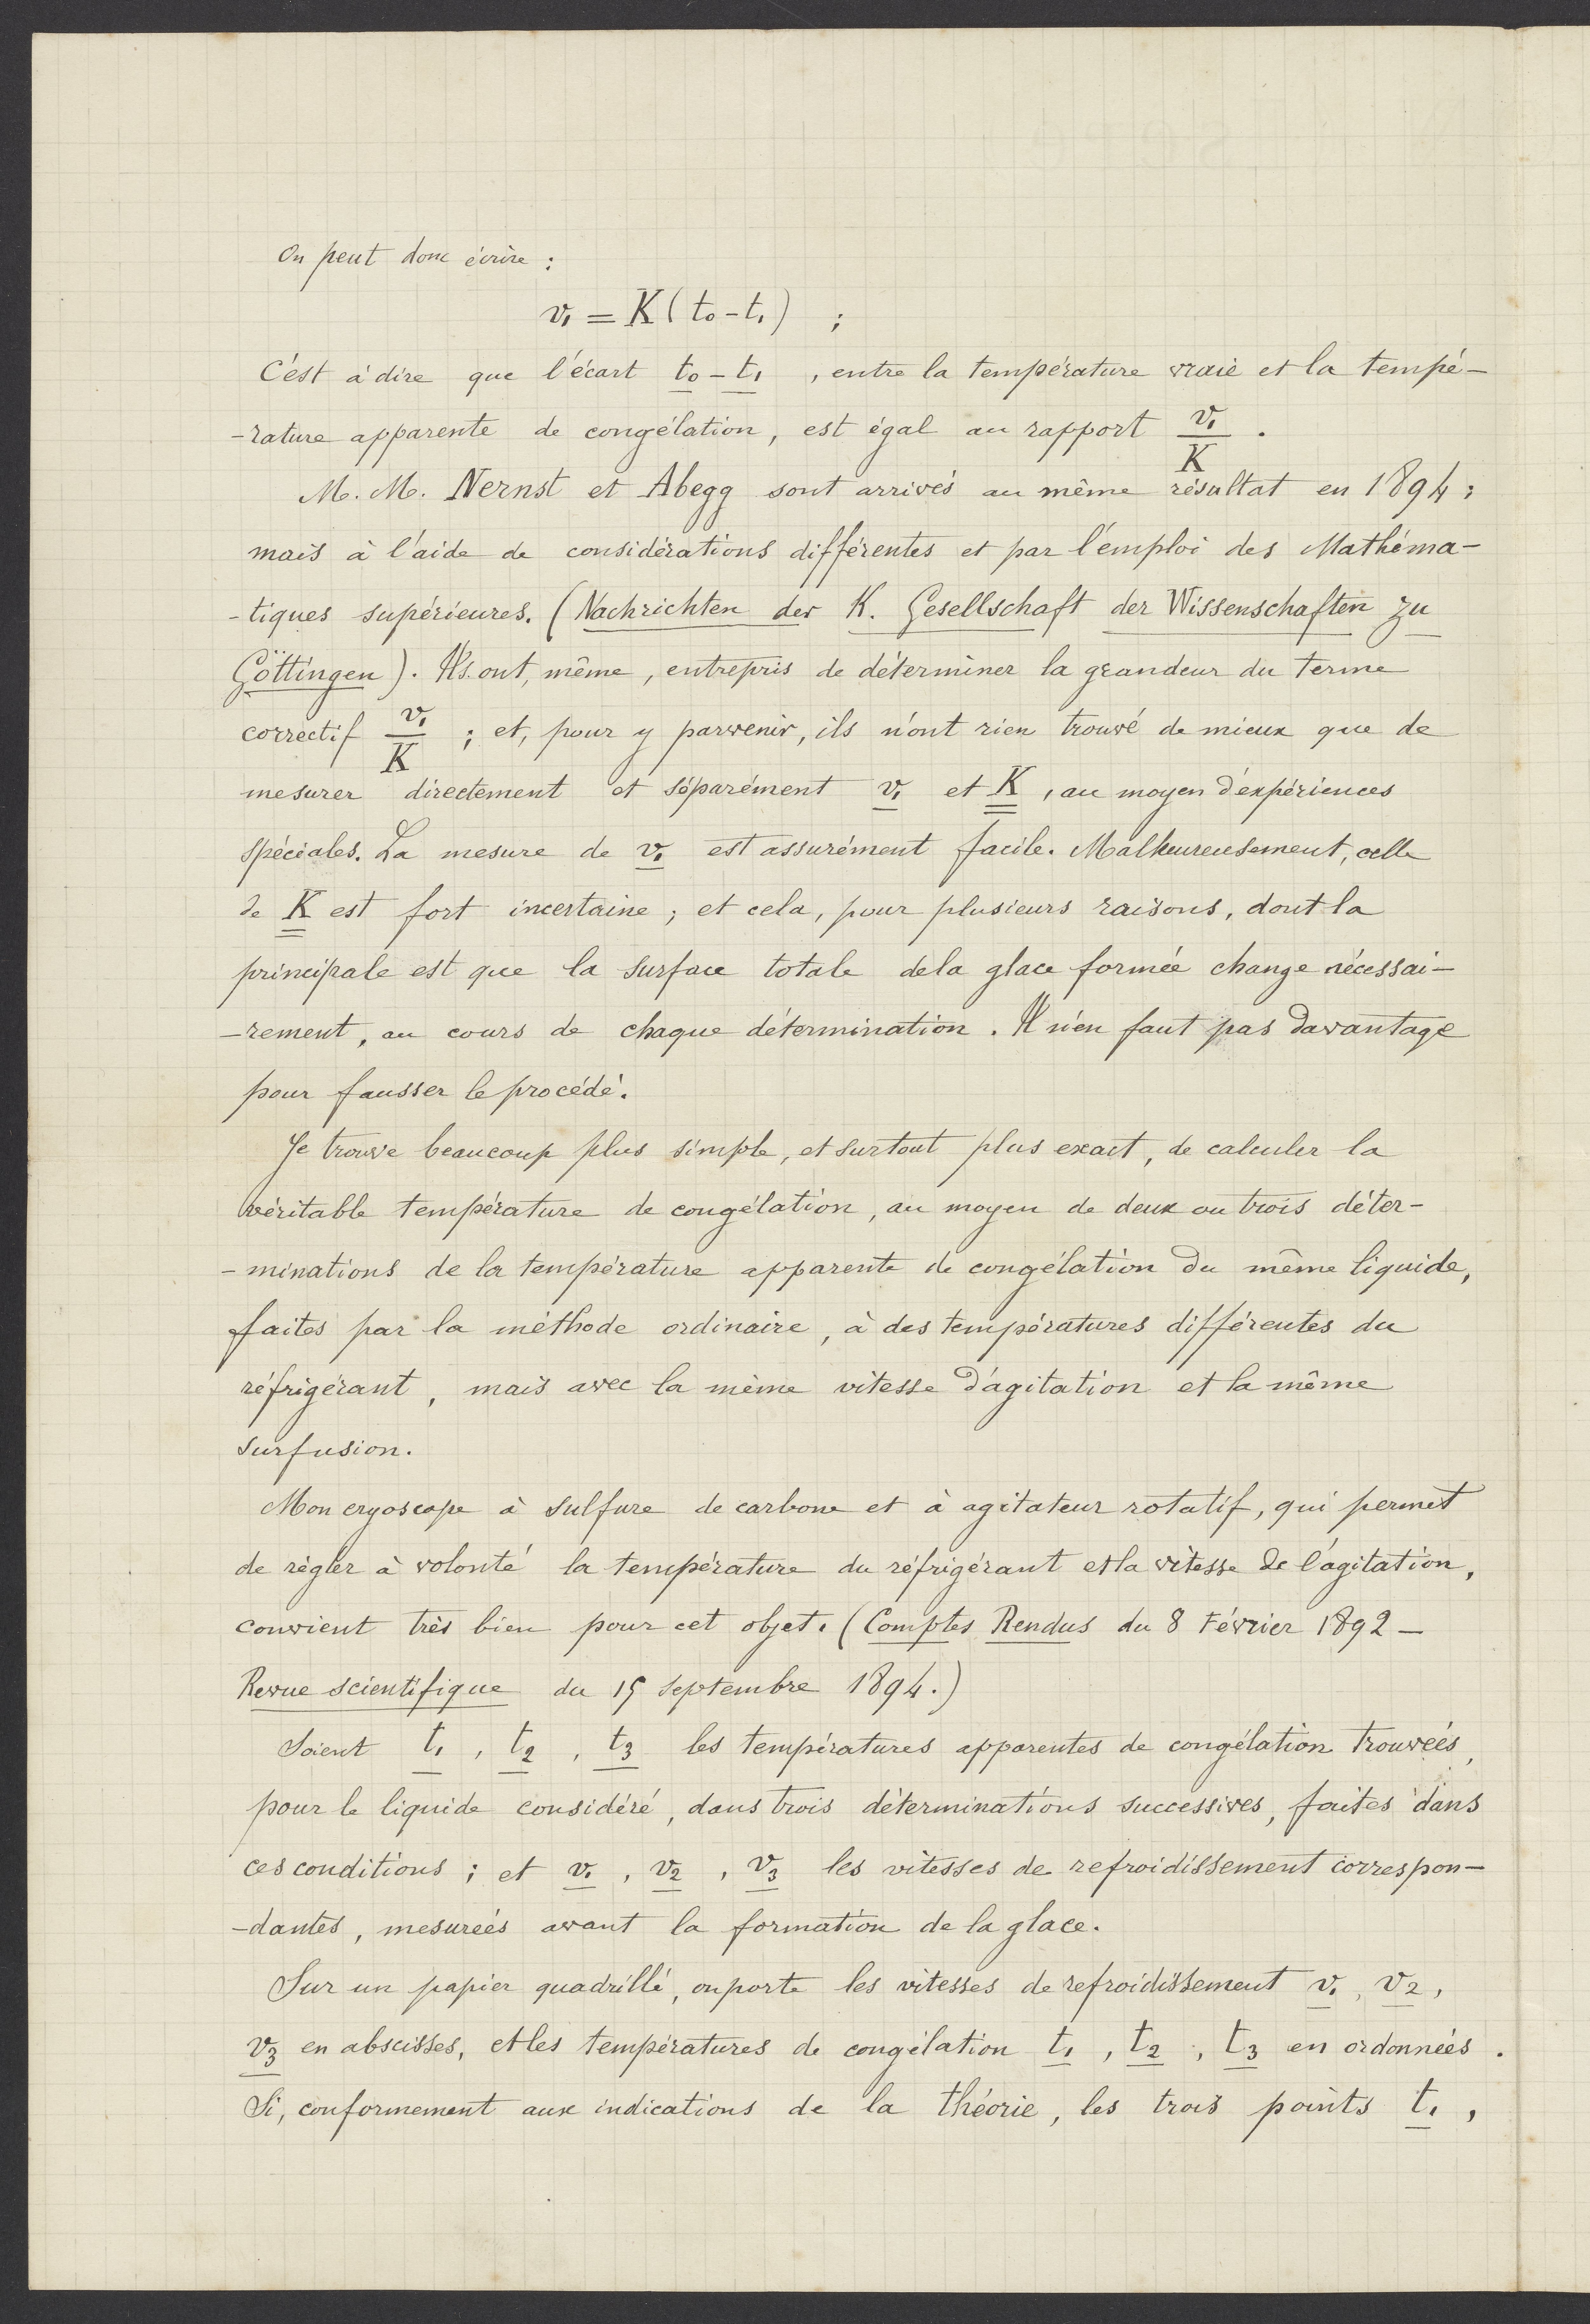 On peut donc écrire :
v₁ = K (t₀ - t₁) ;
C'est à dire que l'écart t₀ - t₁ , entre la température vraie et la tempé-
-rature apparente de congélation, est égal au rapport v₁/K .
M. M. Nernst et Abegg sont arrivés au même résultat en 1894 ;
mais à l'aide de considérations différentes et par l'emploi des Mathéma-
-tiques supérieures. (Nachrichten der K. Gesellschaft der Wissenschaften zu
Göttingen). Ils ont, même, entrepris de déterminer la grandeur du terme
correctif v₁/K ; et, pour y parvenir, ils n'ont rien trouvé de mieux que de
mesurer directement et séparément v₁ et K , au moyen d'expériences
spéciales. La mesure de v₁ est assurément facile. Malheureusement, celle
de K est fort incertaine ; et cela, pour plusieurs raisons, dont la
principale est que la surface totale de la glace formée change nécessai-
-rement, au cours de chaque détermination. Il n'en faut pas davantage
pour fausser le procédé.
Je trouve beaucoup plus simple, et surtout plus exact, de calculer la
véritable température de congélation, au moyen de deux ou trois déter-
-minations de la température apparente de congélation du même liquide,
faites par la méthode ordinaire, à des températures différentes du
réfrigérant, mais avec la même vitesse d'agitation et la même
surfusion.
Mon cryoscope à sulfure de carbone et à agitateur rotatif, qui permet
de règler à volonté la température du réfrigérant et la vitesse de l'agitation,
convient très bien pour cet objet. (Comptes Rendus du 8 Février 1892 -
Revue scientifique du 15 septembre 1894.)
Soient t₁ , t₂ , t₃ les températures apparentes de congélation trouvées,
pour le liquide considéré, dans trois déterminations successives, faites dans
ces conditions ; et v₁ , v₂ , v₃ les vitesses de refroidissement correspon-
-dantes, mesurées avant la formation de la glace.
Sur un papier quadrillé, on porte les vitesses de refroidissement v₁ , v₂ ,
v₃ en abscisses, et les températures de congélation t₁ , t₂ , t₃ en ordonnées .
Si, conformement aux indications de la théorie, les trois points t₁ ,